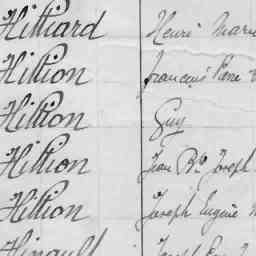 Hilliard Henri Marie
Hillion François Pierre
Hillion Guy
Hillion Jean Bte Joseph
Hillion Joseph Eugène
Hinault Joseph